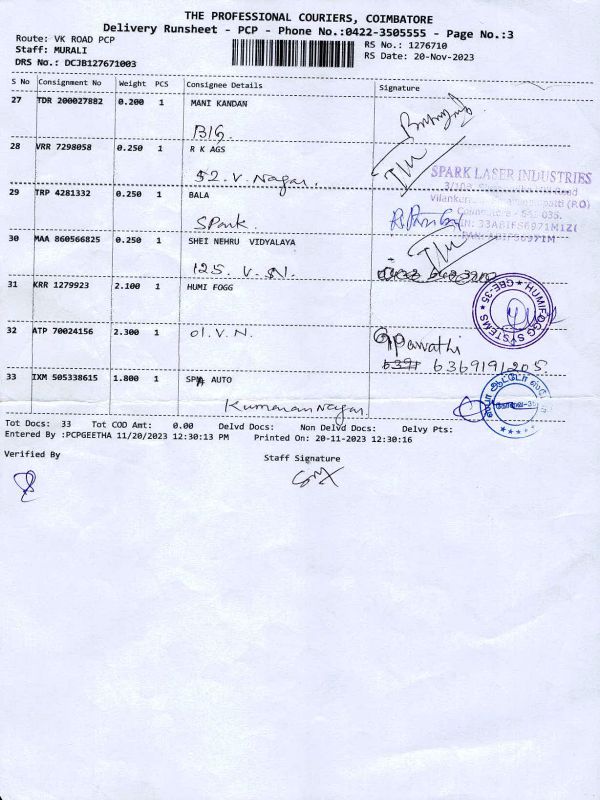 THE PROFESSIONAL COURIERS, COIMBATORE
Delivery Runsheet - PCP - Phone No.:0422-3505555 - Page No.:3
Route: VK ROAD PCP
RS No.: 1276710
Staff: MURALI
RS Date: 20-Nov-2023
DRS No.: DCJB127671003
S No Consignment No Weight PCS Consignee Details Signature
27 TDR 200027882 0.200 1 MANI KANDAN
B1G.
28 VRR 7298058 0.250 1 R K AGS
52. V. Nagar.
SPARK LASER INDUSTRIES
29 TRP 4281332 0.250 1 BALA
SPark.
30 MAA 860566825 0.250 1 SHEI NEHRU VIDYALAYA
125. V. N.
31 KRR 1279923 2.100 1 HUMI FOGG
HUMIFOGG SYSTEMS ★ CBE-35 ★
32 ATP 70024156 2.300 1 01. V. N.
6369191205
33 IXM 505338615 1.800 1 AUTO
Kumaran Nagar
கோவை-35
Tot Docs: 33 Tot COD Amt: 0.00 Delvd Docs: Non Delvd Docs: Delvy Pts:
Entered By :PCPGEETHA 11/20/2023 12:30:13 PM Printed On: 20-11-2023 12:30:16
Verified By Staff Signature